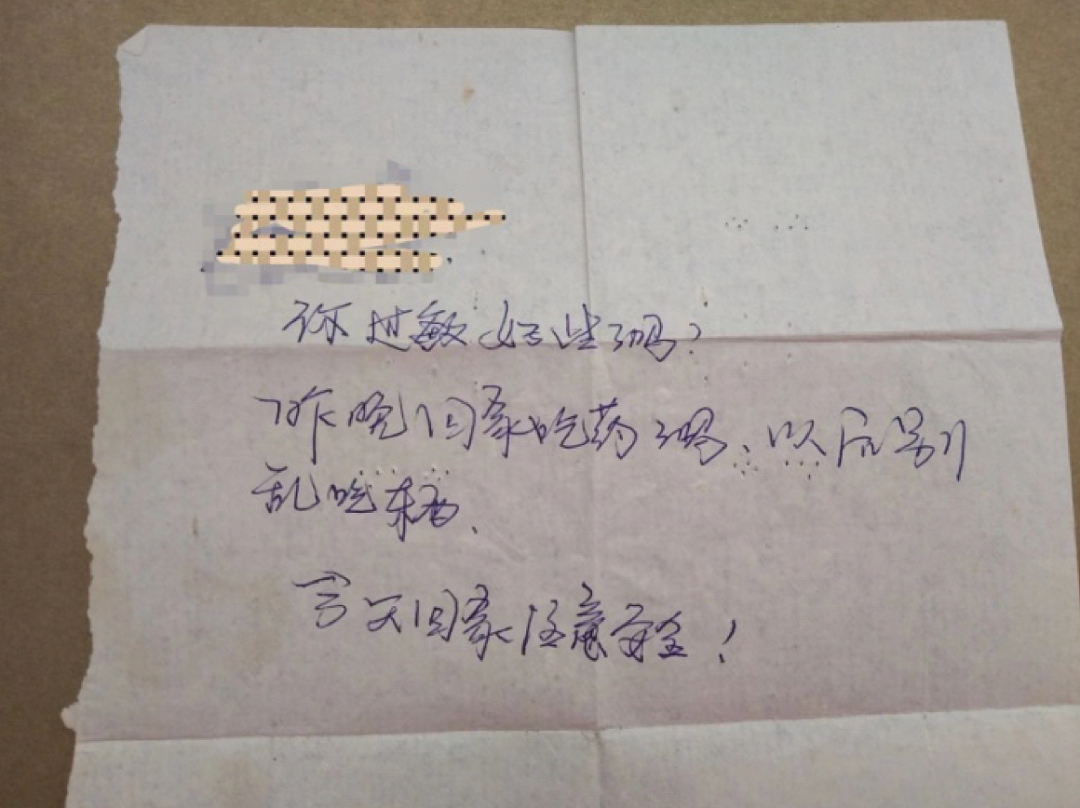 你过敏好些了吗?
昨晚回家吃药了吗、以后别
乱吃东西、
今天回家注意安全!